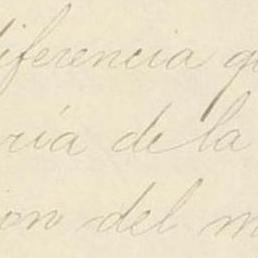 diferencia q
ría de la
ion del m